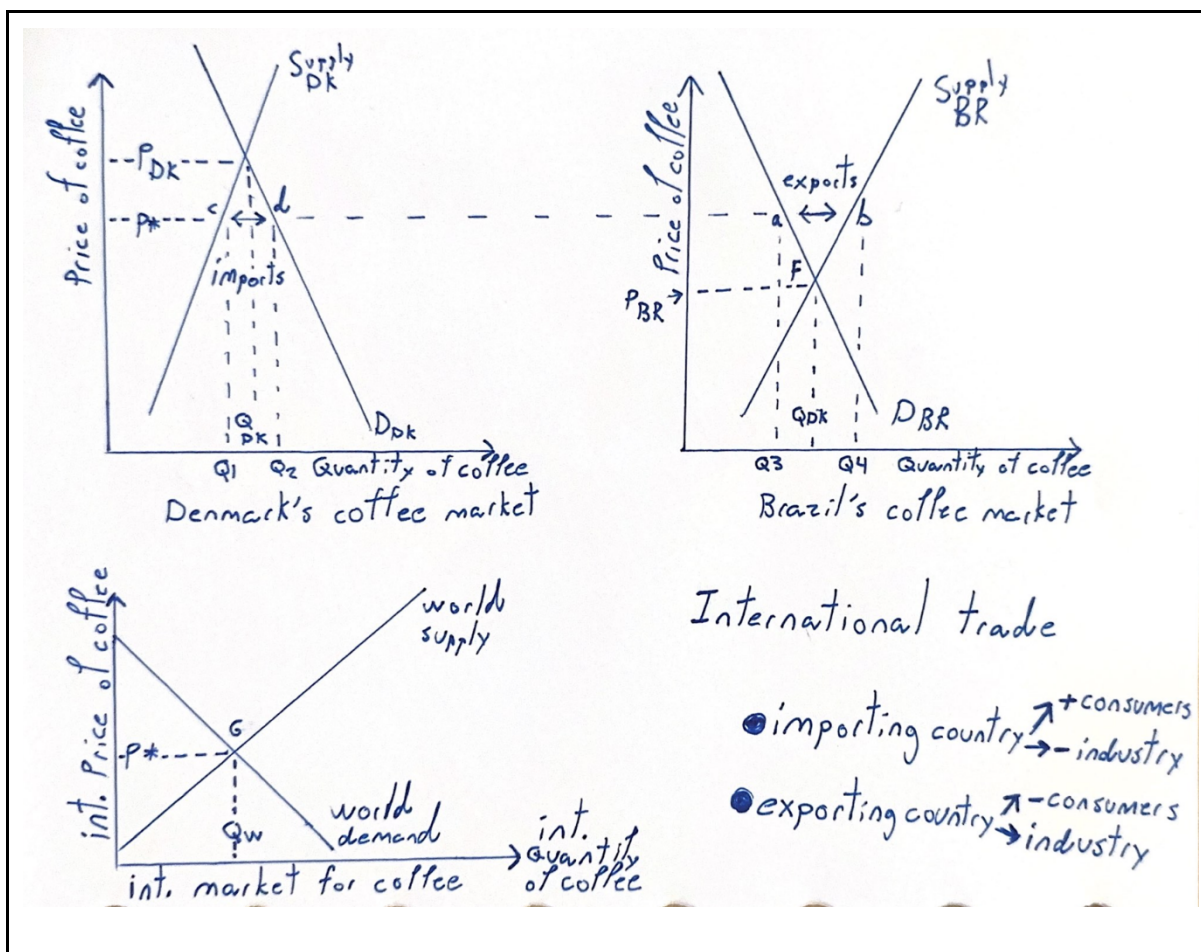 Supply
DK
Price of coffee
PDK
P*
c
d
imports
Q
DK
DDK
Q1
Q2
Quantity of coffee
Denmark's coffee market
Supply
BR
Price of coffee
exports
a
b
F
PBR
QDK
DBR
Q3
Q4
Quantity of coffee
Brazil's coffee market
int. Price of coffee
world
supply
G
P*
Qw
world
demand
int.
Quantity
of coffee
int. market for coffee
International trade
importing country
+consumers
-industry
exporting country
-consumers
industry